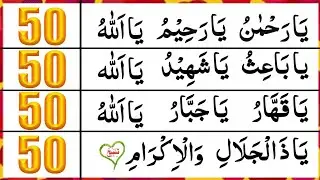 50 يَا رَحْمٰنُ يَا رَحِيْمُ يَا اَللّٰهُ
50 يَا بَاعِثُ يَا شَهِيْدُ يَا اَللّٰهُ
50 يَا قَهَّارُ يَا جَبَّارُ يَا اَللّٰهُ
50 يَا ذَالْجَلَالِ وَالْاِكْرَامِ